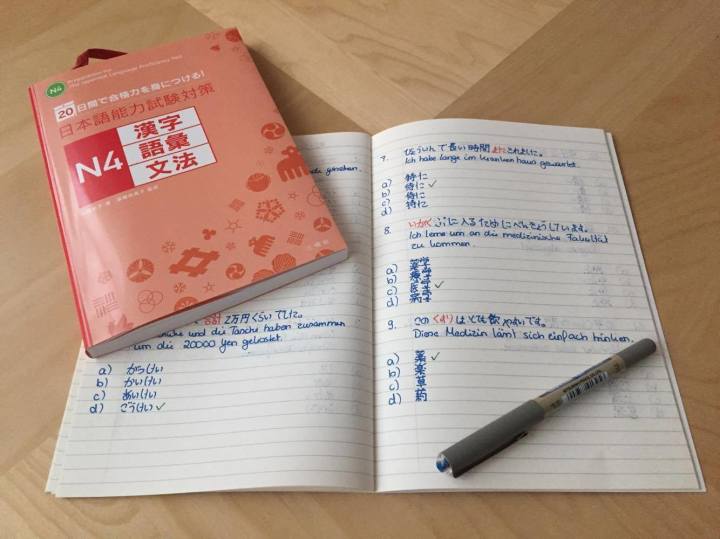 N4
Preparation for
The Japanese Language Proficiency Test
20日間で合格力を身につける!
日本語能力試験対策
N4
漢字
語彙
文法
gesehen.
合計 2万円くらいでした。
und die Tasche haben zusammen
um die 20000 Yen gekostet.
a)
b) かいけい
c) あいけい
d) ごうけい ✓
7. びょういんで長い時間 またされました。
Ich habe lange im Krankenhaus gewartet.
a)
b) ✓
c)
d)
8. いがくぶに入るためにべんきょうしています。
Ich lerne um an die medizinische Fakultät
zu kommen.
a) 薬学
b) 療学
c) 医学 ✓
d) 病学
9. このくすりはとても飲みやすいです。
Diese Medizin lässt sich einfach trinken.
a) 薬 ✓
b) 楽
c) 草
d)